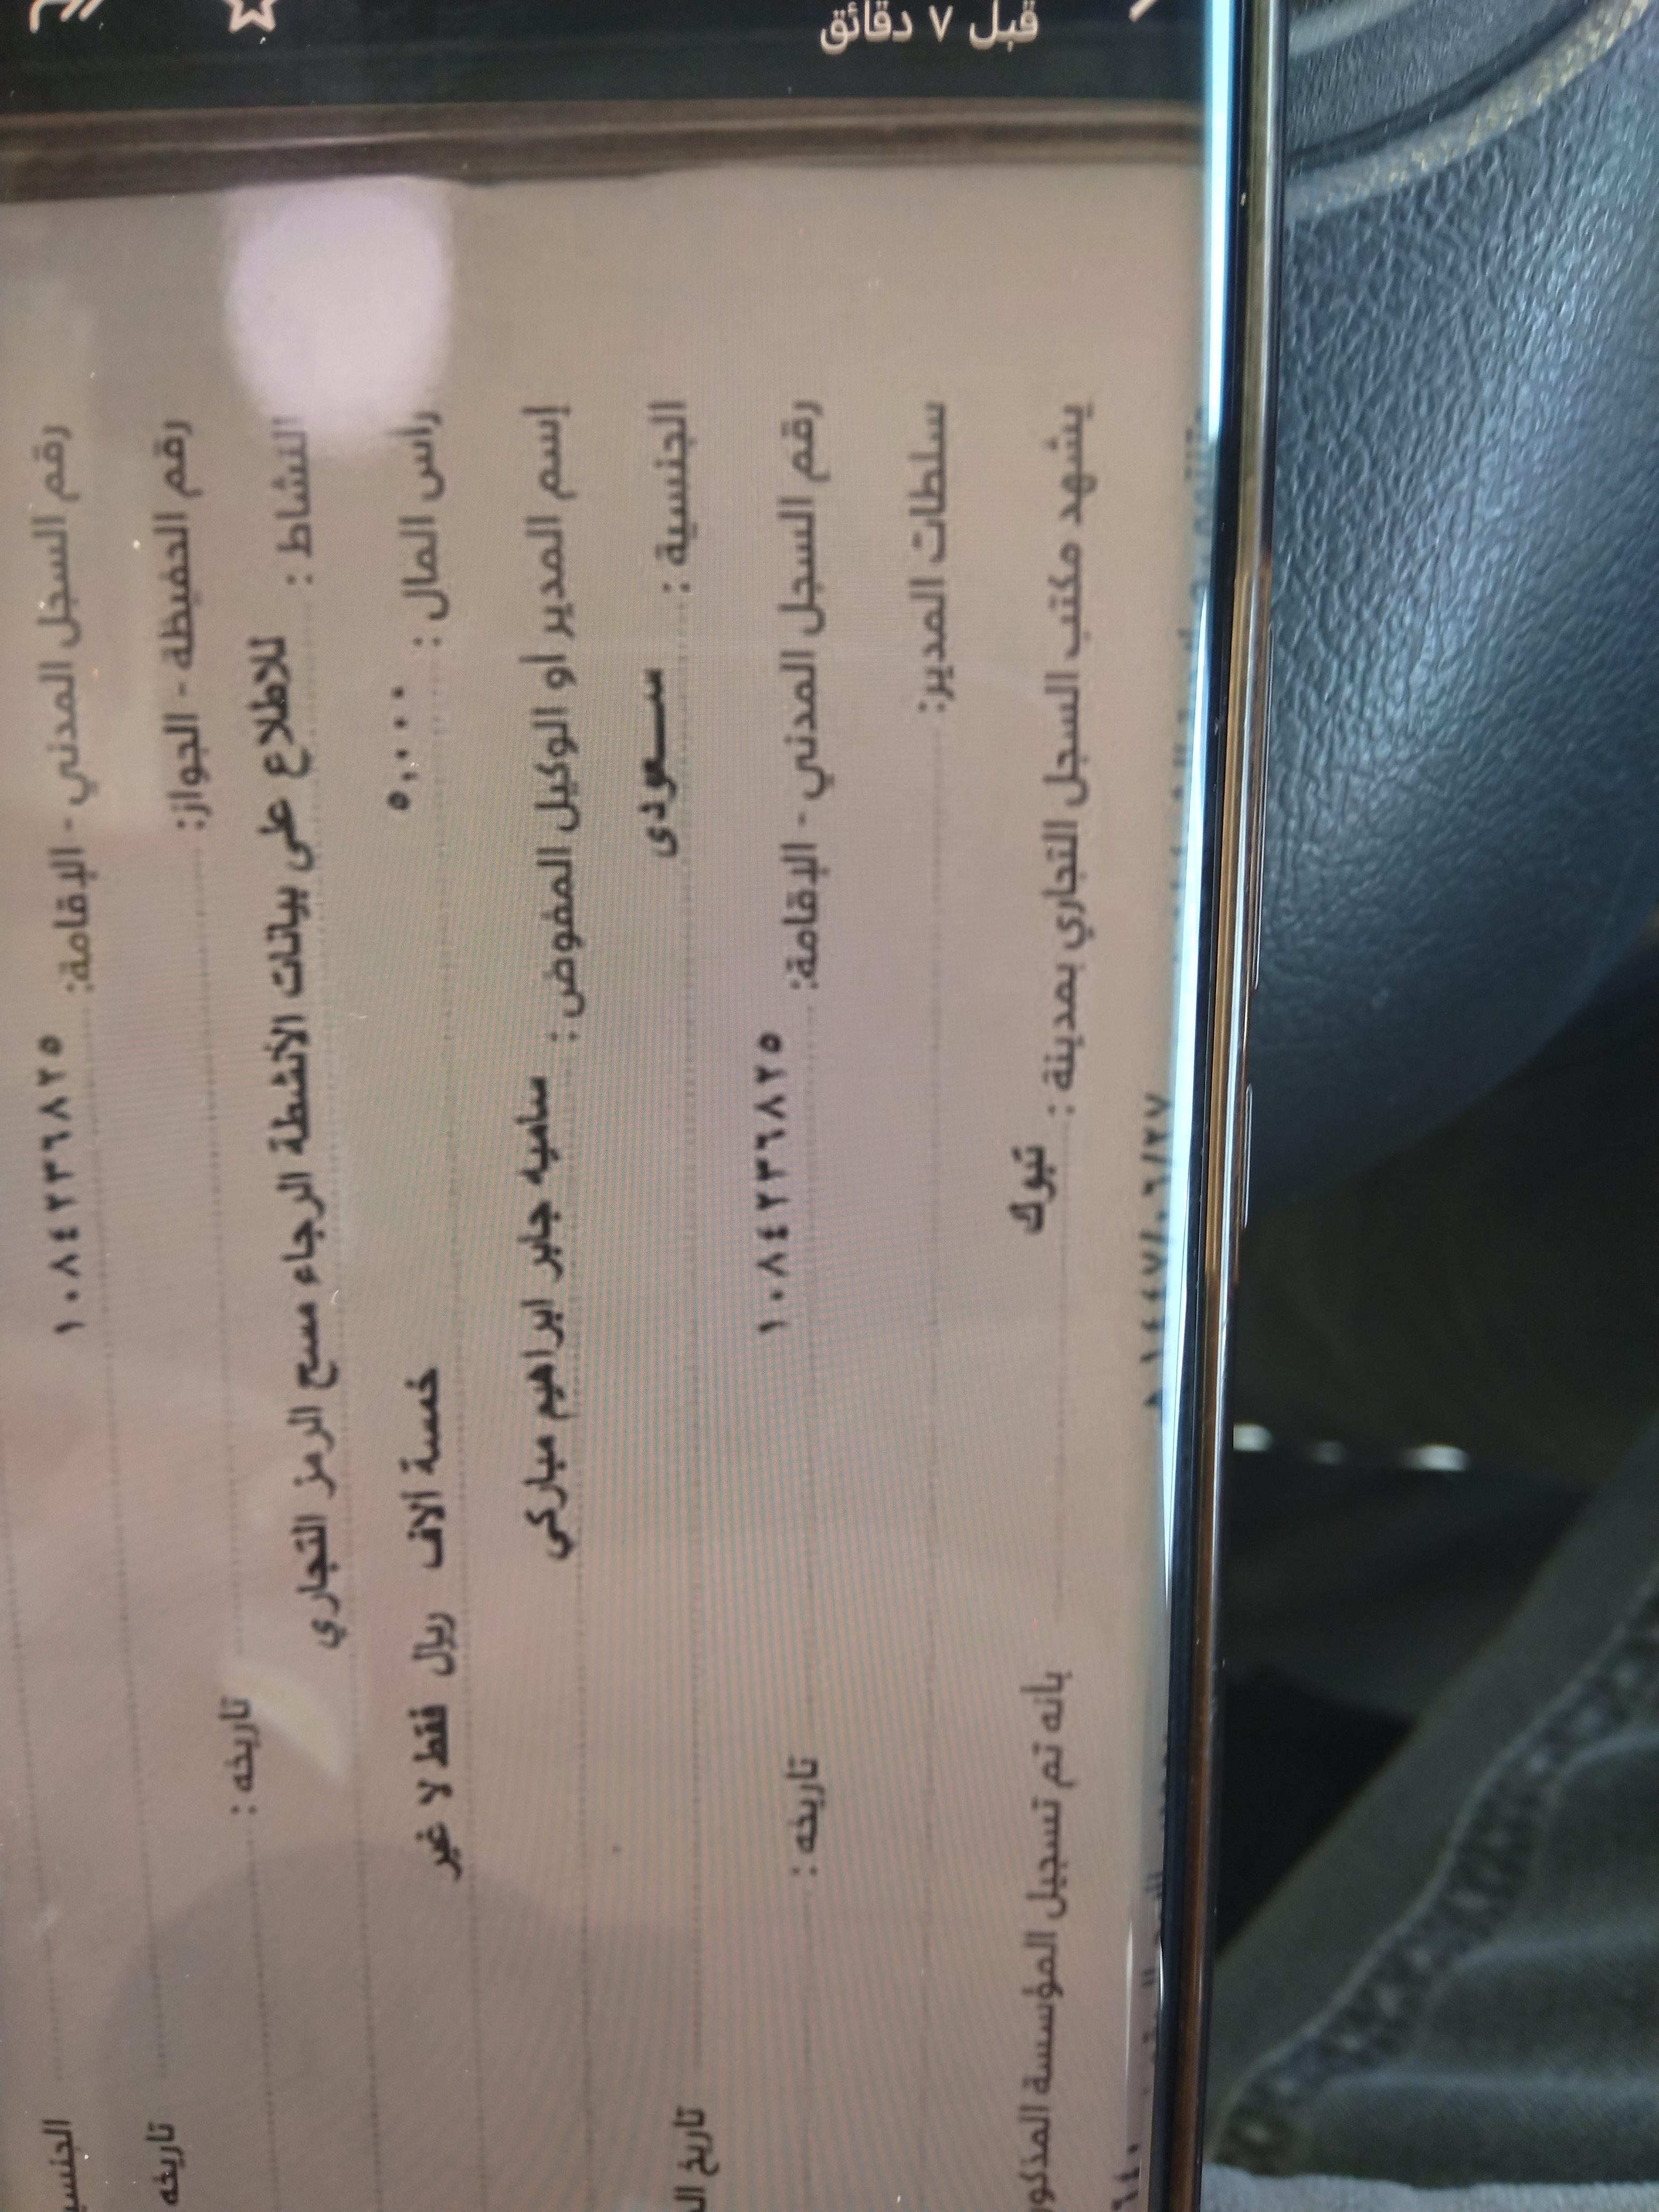 قبل ٧ دقائق
رقم السجل المدني - الإقامة: ١٠٨٤٢٣٦٨٢٥
رقم الحفيظة - الجواز: تاريخه :
النشاط : للاطلاع على بيانات الأنشطة الرجاء مسح الرمز التجاري
رأس المال : ٥,٠٠٠ خمسة آلاف ريال فقط لا غير
إسم المدير او الوكيل المفوض : ساميه جابر ابراهيم مباركي
الجنسية : سعودى تاريخ
رقم السجل المدني - الإقامة: ١٠٨٤٢٣٦٨٢٥ تاريخه :
سلطات المدير:
يشهد مكتب السجل التجاري بمدينة : تبوك بأنه تم تسجيل المؤسسة